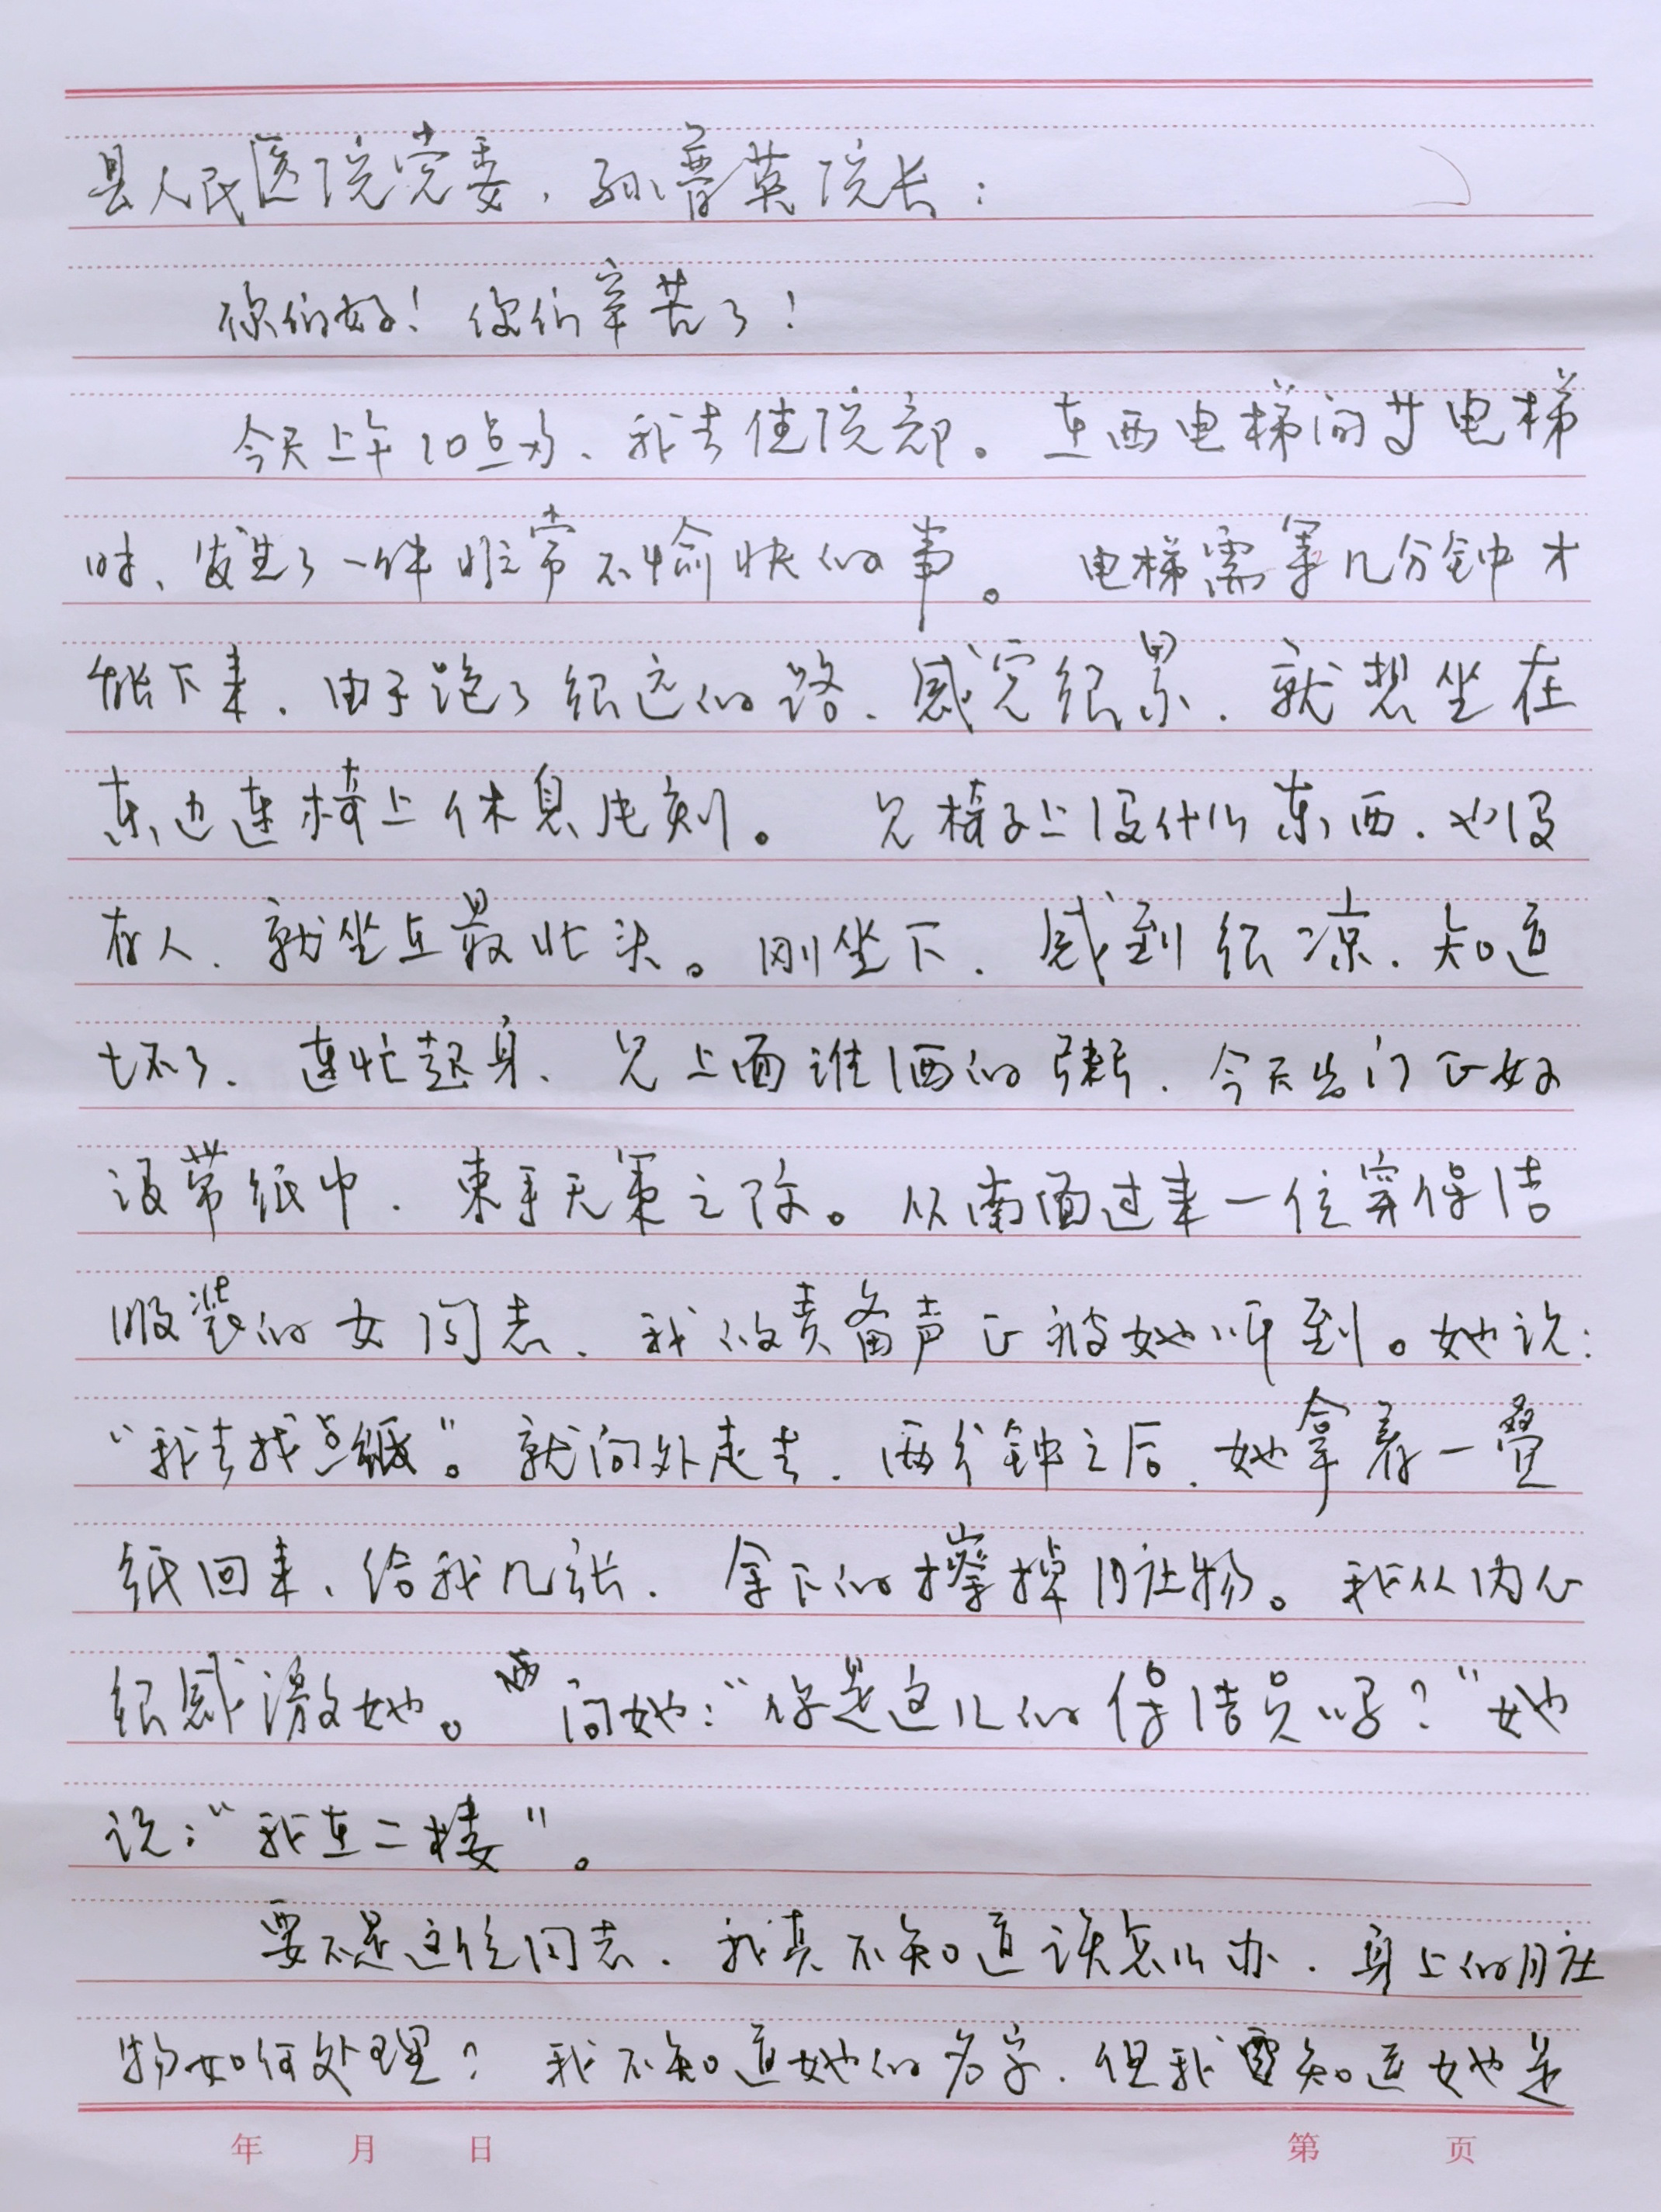 县人民医院党委、孙普英院长：
你们好！你们辛苦了！
今天上午10点多、我去住院部。在西电梯间等电梯
时、发生了一件非常不愉快的事。电梯需等几分钟才
能下来、由于跑了很远的路、感觉很累、就想坐在
东边连椅上休息片刻。见椅子上没什么东西、也没
有人、就坐在最北头。刚坐下、感到很凉、知道
坏了、连忙起身、见上面谁洒的粥、今天出门正好
没带纸巾、束手无策之际。从南面过来一位穿保洁
服装的女同志、我的责备声正被她听到。她说：
“我去找点纸”。就向外走去、两分钟之后、她拿着一叠
纸回来、给我几张、余下的擦掉脏物。我从内心
很感激她。问她：“你是这儿的保洁员吗？”她
说：“我在二楼”。
要不是这位同志、我真不知道该怎么办、身上的脏
物如何处理？我不知道她的名字、但我知道她是
年 月 日 第 页